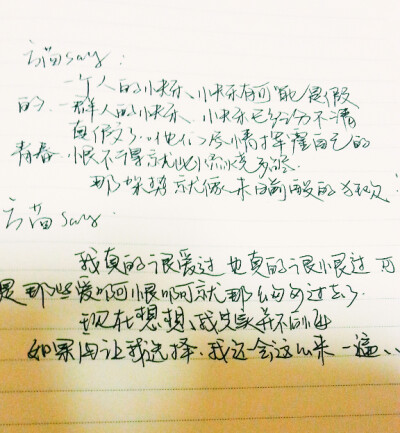 云苗say:
一个人的快乐、快乐有可能是假
的.一群人的快乐、快乐已经分不清
真假了..他们尽情挥霍自己的
青春.恨不得就此燃烧
那架势就像末日前的狂欢
云苗say
我真的很爱过也真的很恨过 可
是那些爱啊恨啊就那么匆匆过去了.
现在想想、我
如果再让我选择.我还会这么来一遍、、